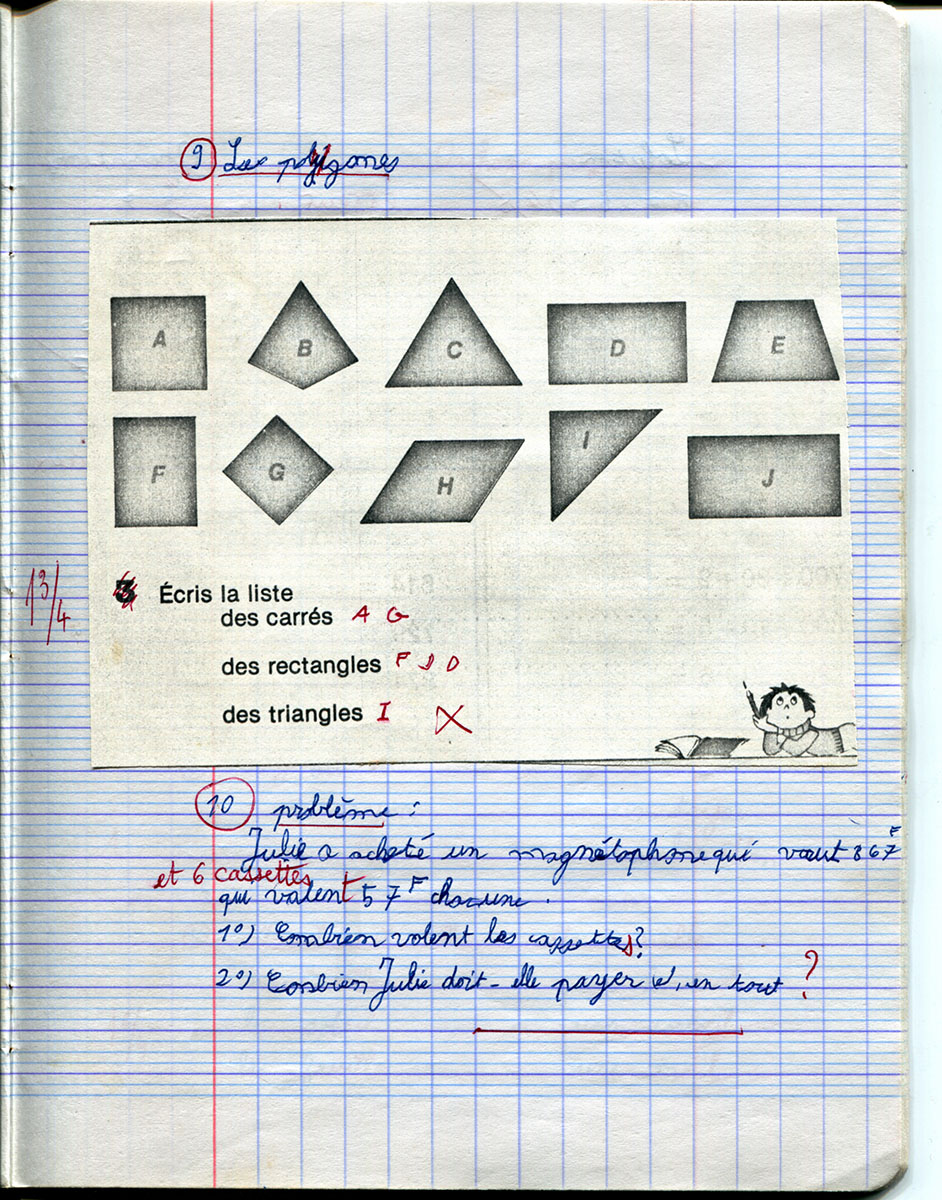 9 Les polygones
A B C D E
F G H I J
13/4
3 Écris la liste
des carrés A G
des rectangles F J D
des triangles I
10 problème :
Julie a acheté un magnétophone qui vaut 867 F
et 6 cassettes
qui valent 57 F chacune.
1°) Combien valent les cassettes?
2°) Combien Julie doit-elle payer en tout ?